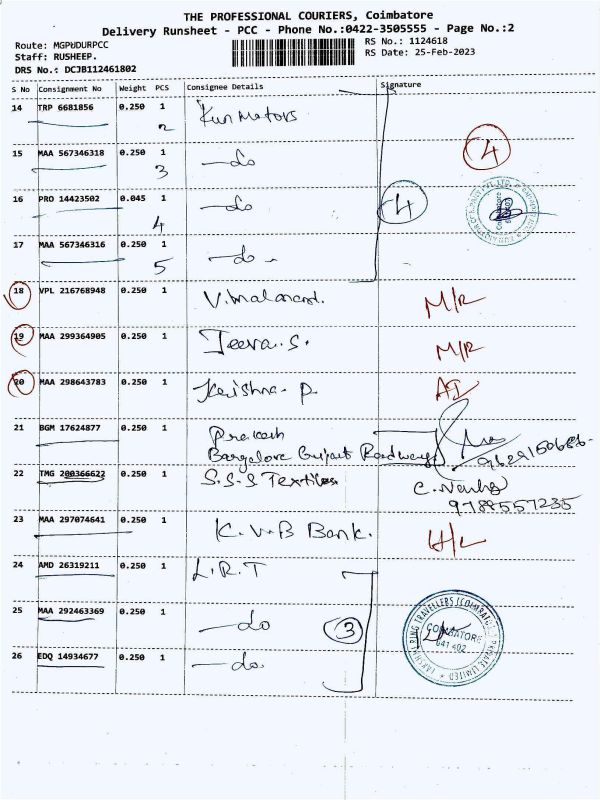 THE PROFESSIONAL COURIERS, Coimbatore
Delivery Runsheet - PCC - Phone No.:0422-3505555 - Page No.:2
Route: MGPUDURPCC
Staff: RUSHEEP.
DRS No.: DCJB112461802
RS No.: 1124618
RS Date: 25-Feb-2023
S No Consignment No Weight PCS Consignee Details Signature
14 TRP 6681856 0.250 1 Kun Motors
2
15 MAA 567346318 0.250 1 —do 4
3
16 PRO 14423502 0.045 1 —do 4
4
17 MAA 567346316 0.250 1 —do
5
18 VPL 216768948 0.250 1 V.malanand. M/R
19 MAA 299364905 0.250 1 Jeeva.S. M/R
20 MAA 298643783 0.250 1 Krishna.P AI
21 BGM 17624877 0.250 1 Prakash
Bangalore Gujarat Roadways 9629150686
22 TMG 200366622 0.250 1 S.S.S Textiles
9788557235
23 MAA 297074641 0.250 1 K.V.B Bank. H/L
24 AMD 26319211 0.250 1 L.R.T
25 MAA 292463369 0.250 1 —do 3
26 EDQ 14934677 0.250 1 —do.
COIMBATORE
641 402